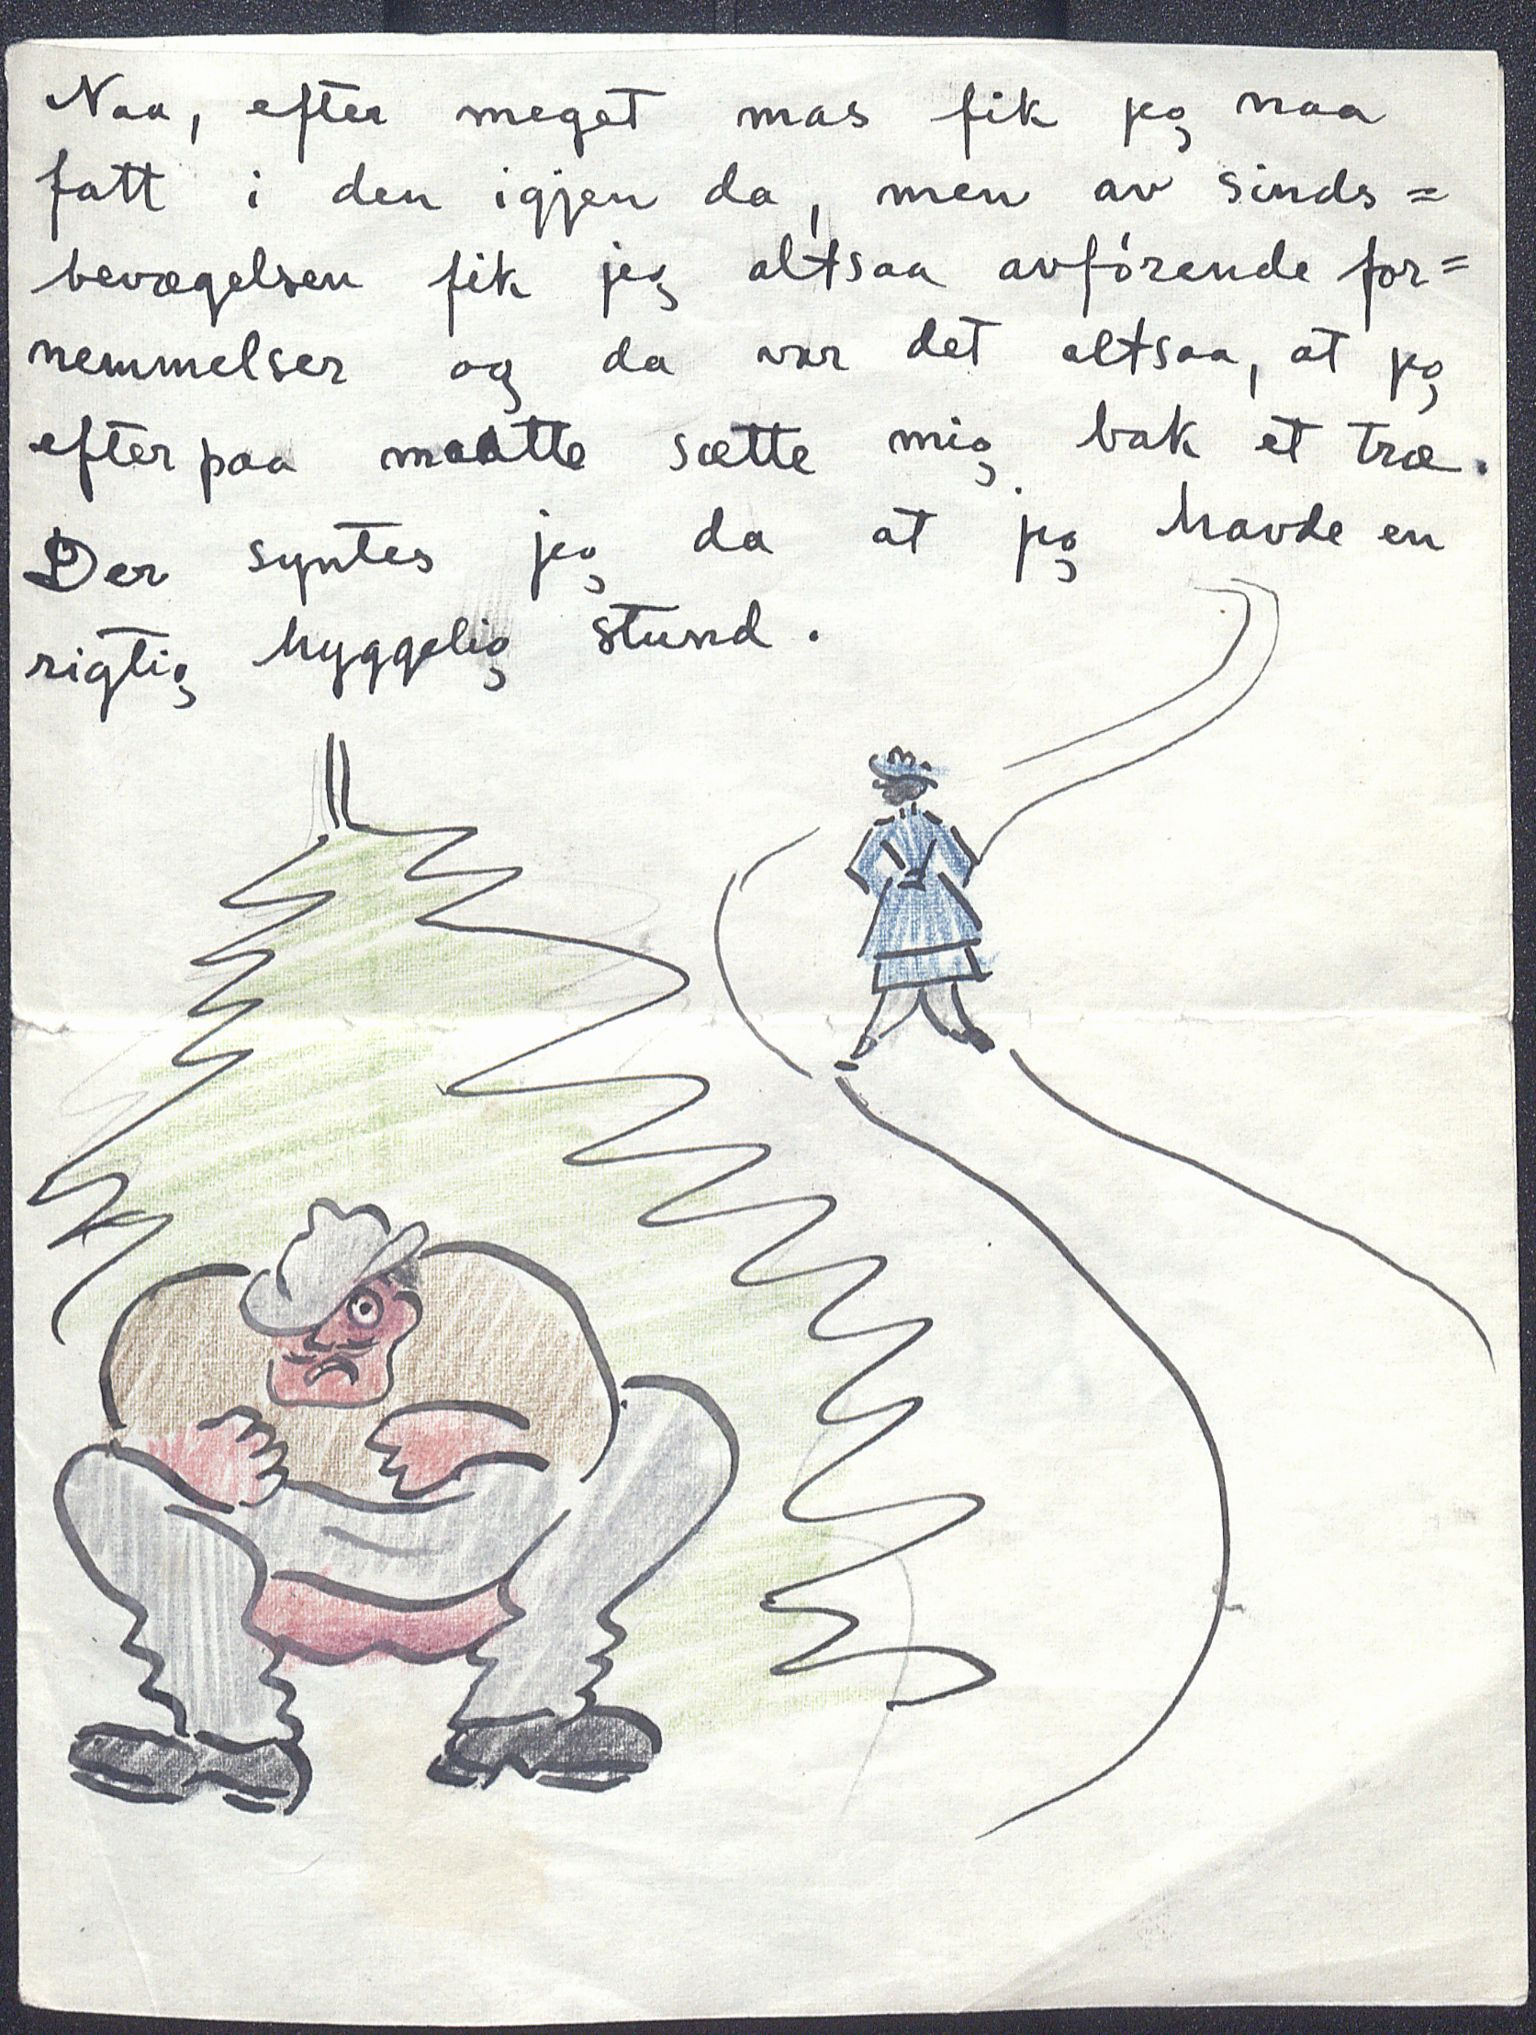 Naa, efter meget mas fik jeg naa
fatt i den igjen da, men av sinds=
bevægelsen fik jeg altsaa avførende for=
nemmelser og da var det altsaa, at jeg
efterpaa maatte sætte mig bak et træ.
Der syntes jeg da at jeg havde en
rigtig hyggelig stund.